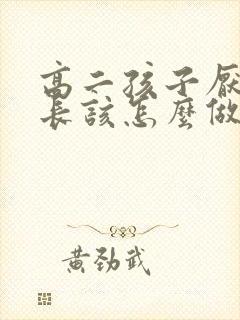 高二孩子厭
長該怎麼做
黃勁武